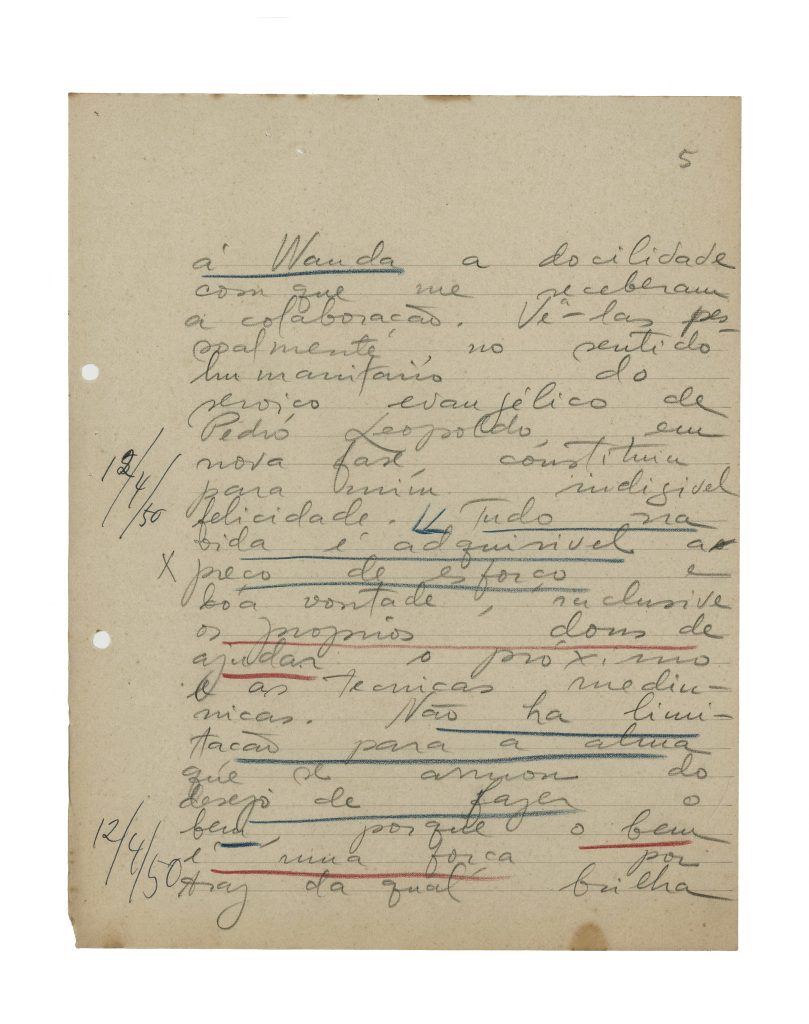 5
á Wanda a docilidade
com que me receberam
a colaboração. Vê-las pes-
soalmente, no sentido
humanitario do
serviço evangélico de
Pedro Leopoldo em
nova fase, constitue
12/4/50
para mim indizivel
felicidade. Tudo na
vida é adquirivel ao
x preço de esforço e
boa vontade, inclusive
os proprios dons de
ajudar o próximo
e as tecnicas mediu-
nicas. Não ha limi-
tação para a alma
que se armou do
desejo de fazer o
bem, porque o bem
12/4/50
é uma força por
traz da qual brilha